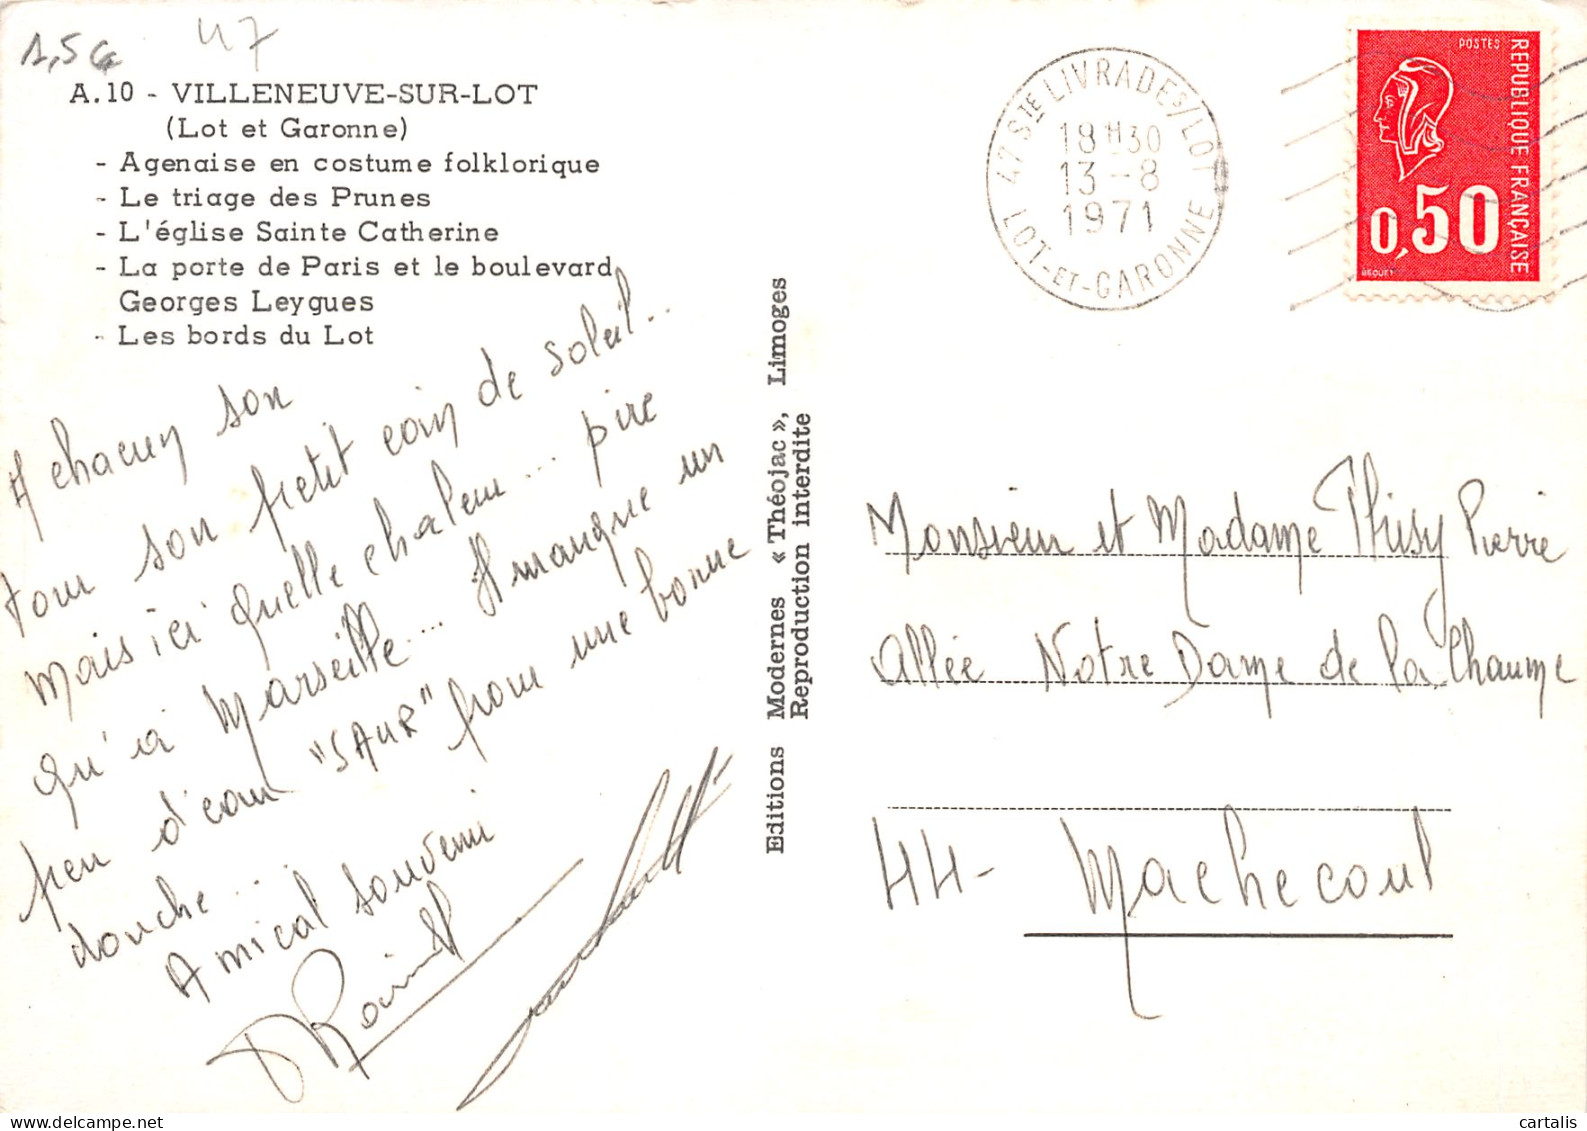 1,5€ 47
A.10 - VILLENEUVE-SUR-LOT
(Lot et Garonne)
- Agenaise en costume folklorique
- Le triage des Prunes
- L'église Sainte Catherine
- La porte de Paris et le boulevard
Georges Leygues
- Les bords du Lot
A chacun son
tour son petit coin de soleil..
Mais ici quelle chaleur... pire
qu'à Marseille... Il manque un
peu d'eau "SAUR" pour une bonne
douche...
Amical souvenir
Editions Modernes « Théojac », Limoges
Reproduction interdite
47 STE LIVRADE S/LOT
18H30
13-8
1971
LOT-ET-GARONNE
POSTES
REPUBLIQUE FRANÇAISE
0,50
BEQUET
Monsieur et Madame Pierre
Allée Notre Dame de la Chaume
44- Machecoul
cartalis